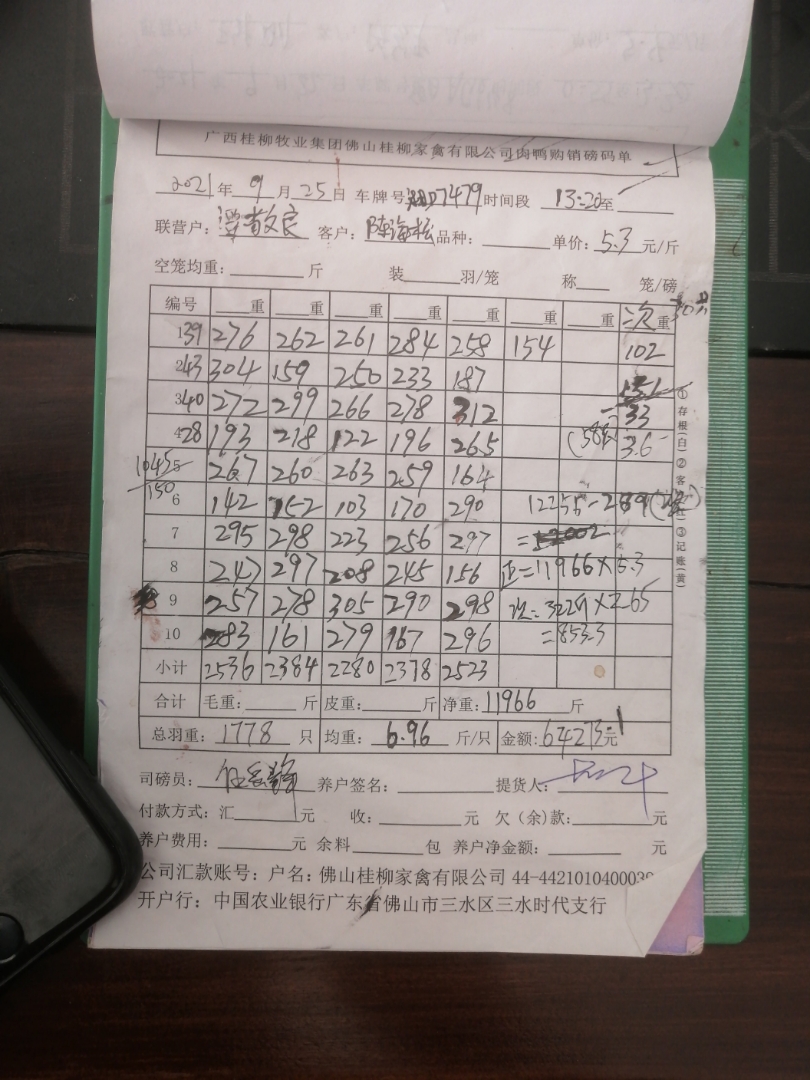 广西桂柳牧业集团佛山桂柳家禽有限公司肉鸭购销磅码单
2021年 9月 25日 车牌号 D7479 时间段 13:20至
联营户： 客户：陈海松 品种： 单价：5.3元/斤
空笼均重： 斤 装 羽/笼 称 笼/磅
编号 重 重 重 重 重 重 重 次重
1 39 276 262 261 284 258 154 102
2 43 304 159 250 233 187
3 40 272 299 266 278 312 33
4 28 193 218 122 196 265 3.6
5 267 260 263 259 164
150
6 142 152 103 170 290 12255-289
7 295 298 223 256 297 =
8 247 297 208 245 156 正=11966×5.3
9 257 278 305 290 298 次= ×2.65
10 283 161 279 167 296 =853.3
小计 2536 2384 2280 2378 2523
合计 毛重： 斤 皮重： 斤 净重：11966 斤
总羽重：1778 只 均重：6.96 斤/只 金额：64273.1元
司磅员： 养户签名： 提货人：
付款方式：汇 元 收： 元 欠（余）款： 元
养户费用： 元 余料 包 养户净金额： 元
公司汇款账号：户名：佛山桂柳家禽有限公司 44-4421010400039
开户行：中国农业银行广东省佛山市三水区三水时代支行
①存根(白)②客 ③记账(黄)